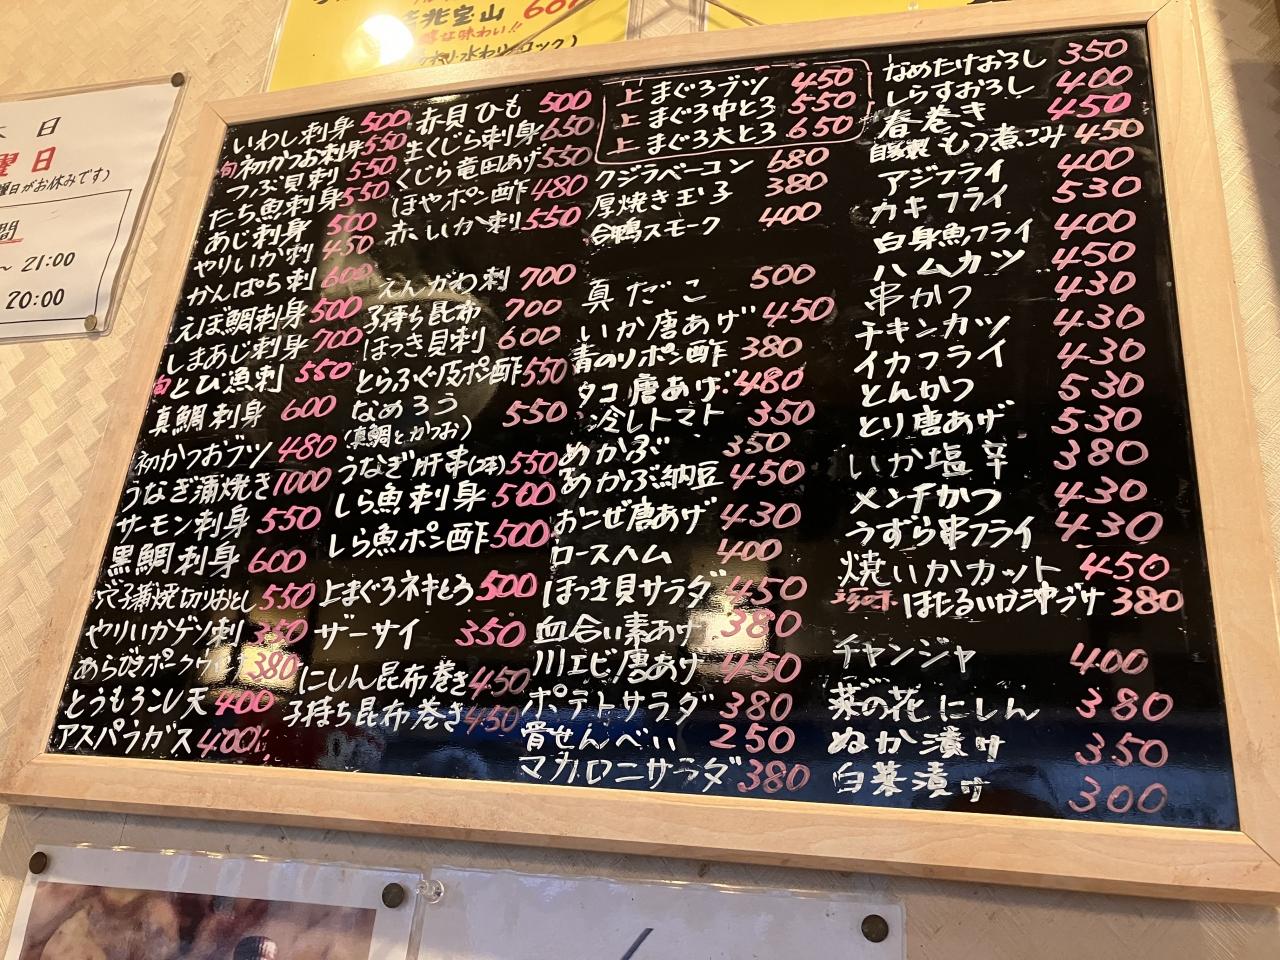 吉兆宝山 600
日
曜日
曜日がお休みです)
間
～ 21:00
20:00
いわし刺身 500
旬 初かつお刺身 550
つぶ貝刺 550
たち魚刺身 550
あじ刺身 500
やりいか刺 450
かんぱち刺 600
えぼ鯛刺身 500
しまあじ刺身 700
旬 とび魚刺 550
真鯛刺身 600
初かつおブツ 480
うなぎ蒲焼き 1000
サーモン刺身 550
黒鯛刺身 600
穴子蒲焼切りおとし 550
やりいかゲソ刺 350
あらびきポークウィンナ 380
とうもろこし天 400
アスパラガス 400
赤貝ひも 500
生くじら刺身 650
くじら竜田あげ 550
ほやポン酢 480
赤いか刺 550
えんがわ刺 700
子持ち昆布 700
ほっき貝刺 600
とらふぐ皮ポン酢 550
なめろう
(真鯛とかつお) 550
うなぎ肝串(2本) 550
しら魚刺身 500
しら魚ポン酢 500
上まぐろネギとろ 500
ザーサイ 350
にしん昆布巻き 450
子持ち昆布巻き 450
上 まぐろブツ 450
上 まぐろ中とろ 550
上 まぐろ大とろ 650
クジラベーコン 680
厚焼き玉子 380
合鴨スモーク 400
真だこ 500
いか唐あげ 450
青のりポン酢 380
タコ唐あげ 480
冷しトマト 350
めかぶ 350
めかぶ納豆 450
おこぜ唐あげ 430
ロースハム 400
ほっき貝サラダ 450
血合い素あげ 380
川エビ唐あげ 450
ポテトサラダ 380
骨せんべい 250
マカロニサラダ 380
なめたけおろし 350
しらすおろし 400
春巻き 450
自家製 もつ煮こみ 450
アジフライ 400
カキフライ 530
白身魚フライ 400
ハムカツ 450
串かつ 430
チキンカツ 430
イカフライ 430
とんかつ 530
とり唐あげ 530
いか塩辛 380
メンチかつ 430
うずら串フライ 430
焼いかカット 450
ほたるいか沖づけ 380
チャンジャ 400
菜の花にしん 380
ぬか漬け 350
白菜漬け 300